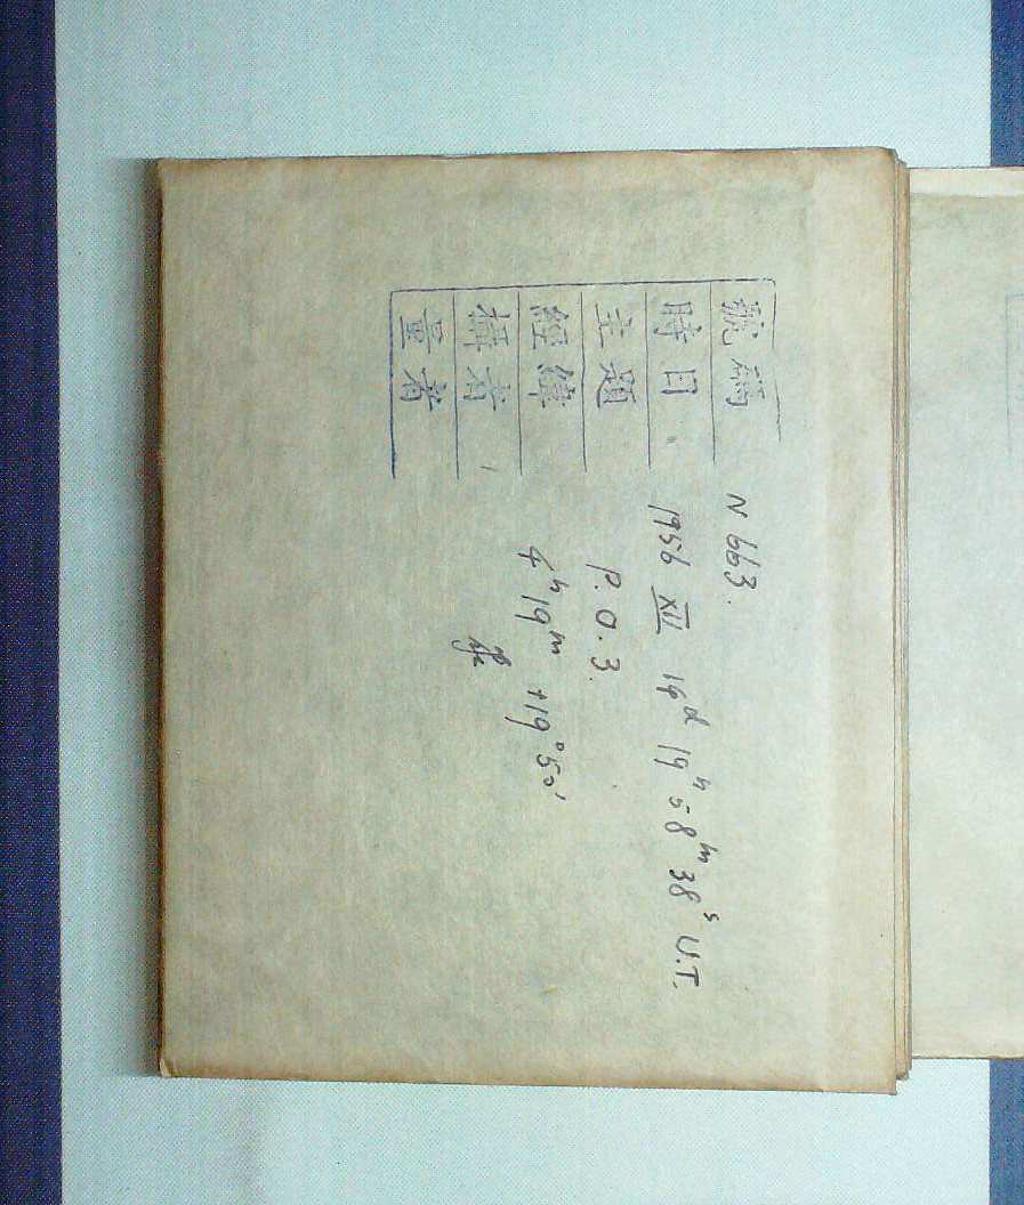 號碼 N 663.
時日 1956 XII 14ᵈ 19ʰ 58ᵐ 38ˢ U.T.
主題 P.O.3.
經緯 4ʰ 19ᵐ +19°50'
攝者
量者